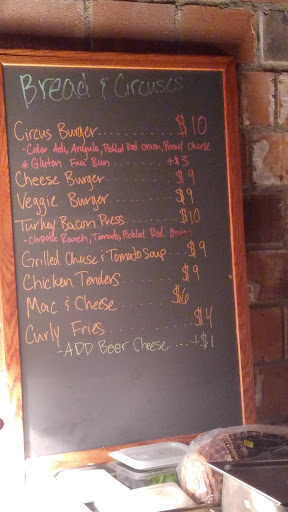 Bread & Circuses
Circus Burger......... $10
-Cider Aoli, Arugula, Pickled Red onion, Brown Cheese
* Gluten Free Bun +$3
Cheese Burger........ $9
Veggie Burger....... $9
Turkey Bacon Press...... $10
-Chipotle Ranch, Tomato, Pickled Red Onion
Grilled Cheese & Tomato Soup... $9
Chicken Tenders....... $9
Mac & Cheese........ $6
Curly Fries.......... $4
-ADD Beer Cheese.... +$1